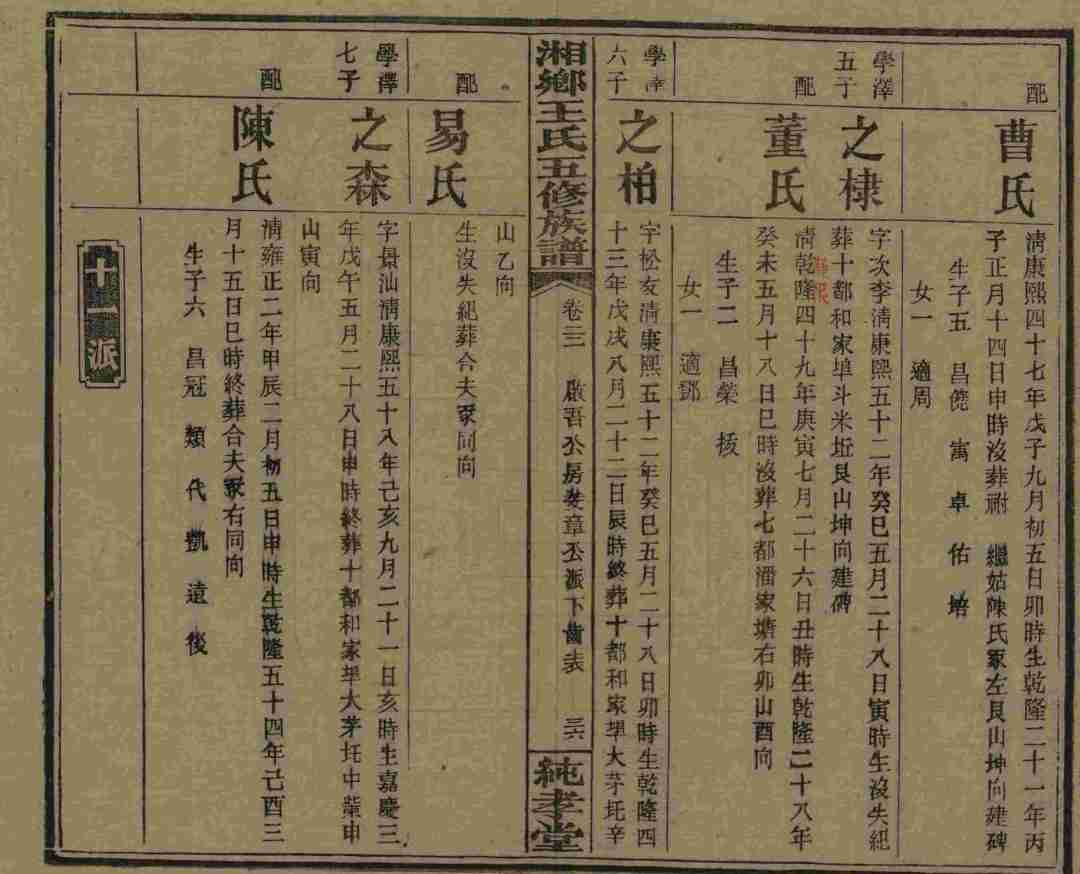 配
曹氏
清康熙四十七年戊子九月初五日卯時生乾隆二十一年丙
子正月十四日申時沒葬祔 繼姑陳氏冢左艮山坤向建碑
生子五 昌 寓 卓 佑 培
女一 適周
學澤
五子
之棣
字次李清康熙五十二年癸巳五月二十八日寅時生沒失紀
葬十都和家埠斗米坵艮山坤向建碑
配
董氏
清乾隆四十九年庚寅七月二十六日丑時生乾隆二十八年
癸未五月十八日巳時沒葬七都潘家塘右卯山酉向
生子二 昌榮 拔
女一 適鄧
學澤
六子
之柏
字松友清康熙五十二年癸巳五月二十八日卯時生乾隆四
十三年戊戌八月二十二日辰時終葬十都和家埠大茅坵辛
湘鄉王氏五修族譜
卷三 啟吾公房 章公派下齒表 三六
純孝堂
山乙向
配
易氏
生沒失紀葬合夫冢同向
學澤
七子
之森
字景汕清康熙五十八年己亥九月二十一日亥時生嘉慶三
年戊午五月二十八日申時終葬十都和家埠大茅坵中塋申
山寅向
配
陳氏
清雍正二年甲辰二月初五日申時生乾隆五十四年己酉三
月十五日巳時終葬合夫冢右同向
生子六 昌冠 類 代 凱 遠 後
十二派